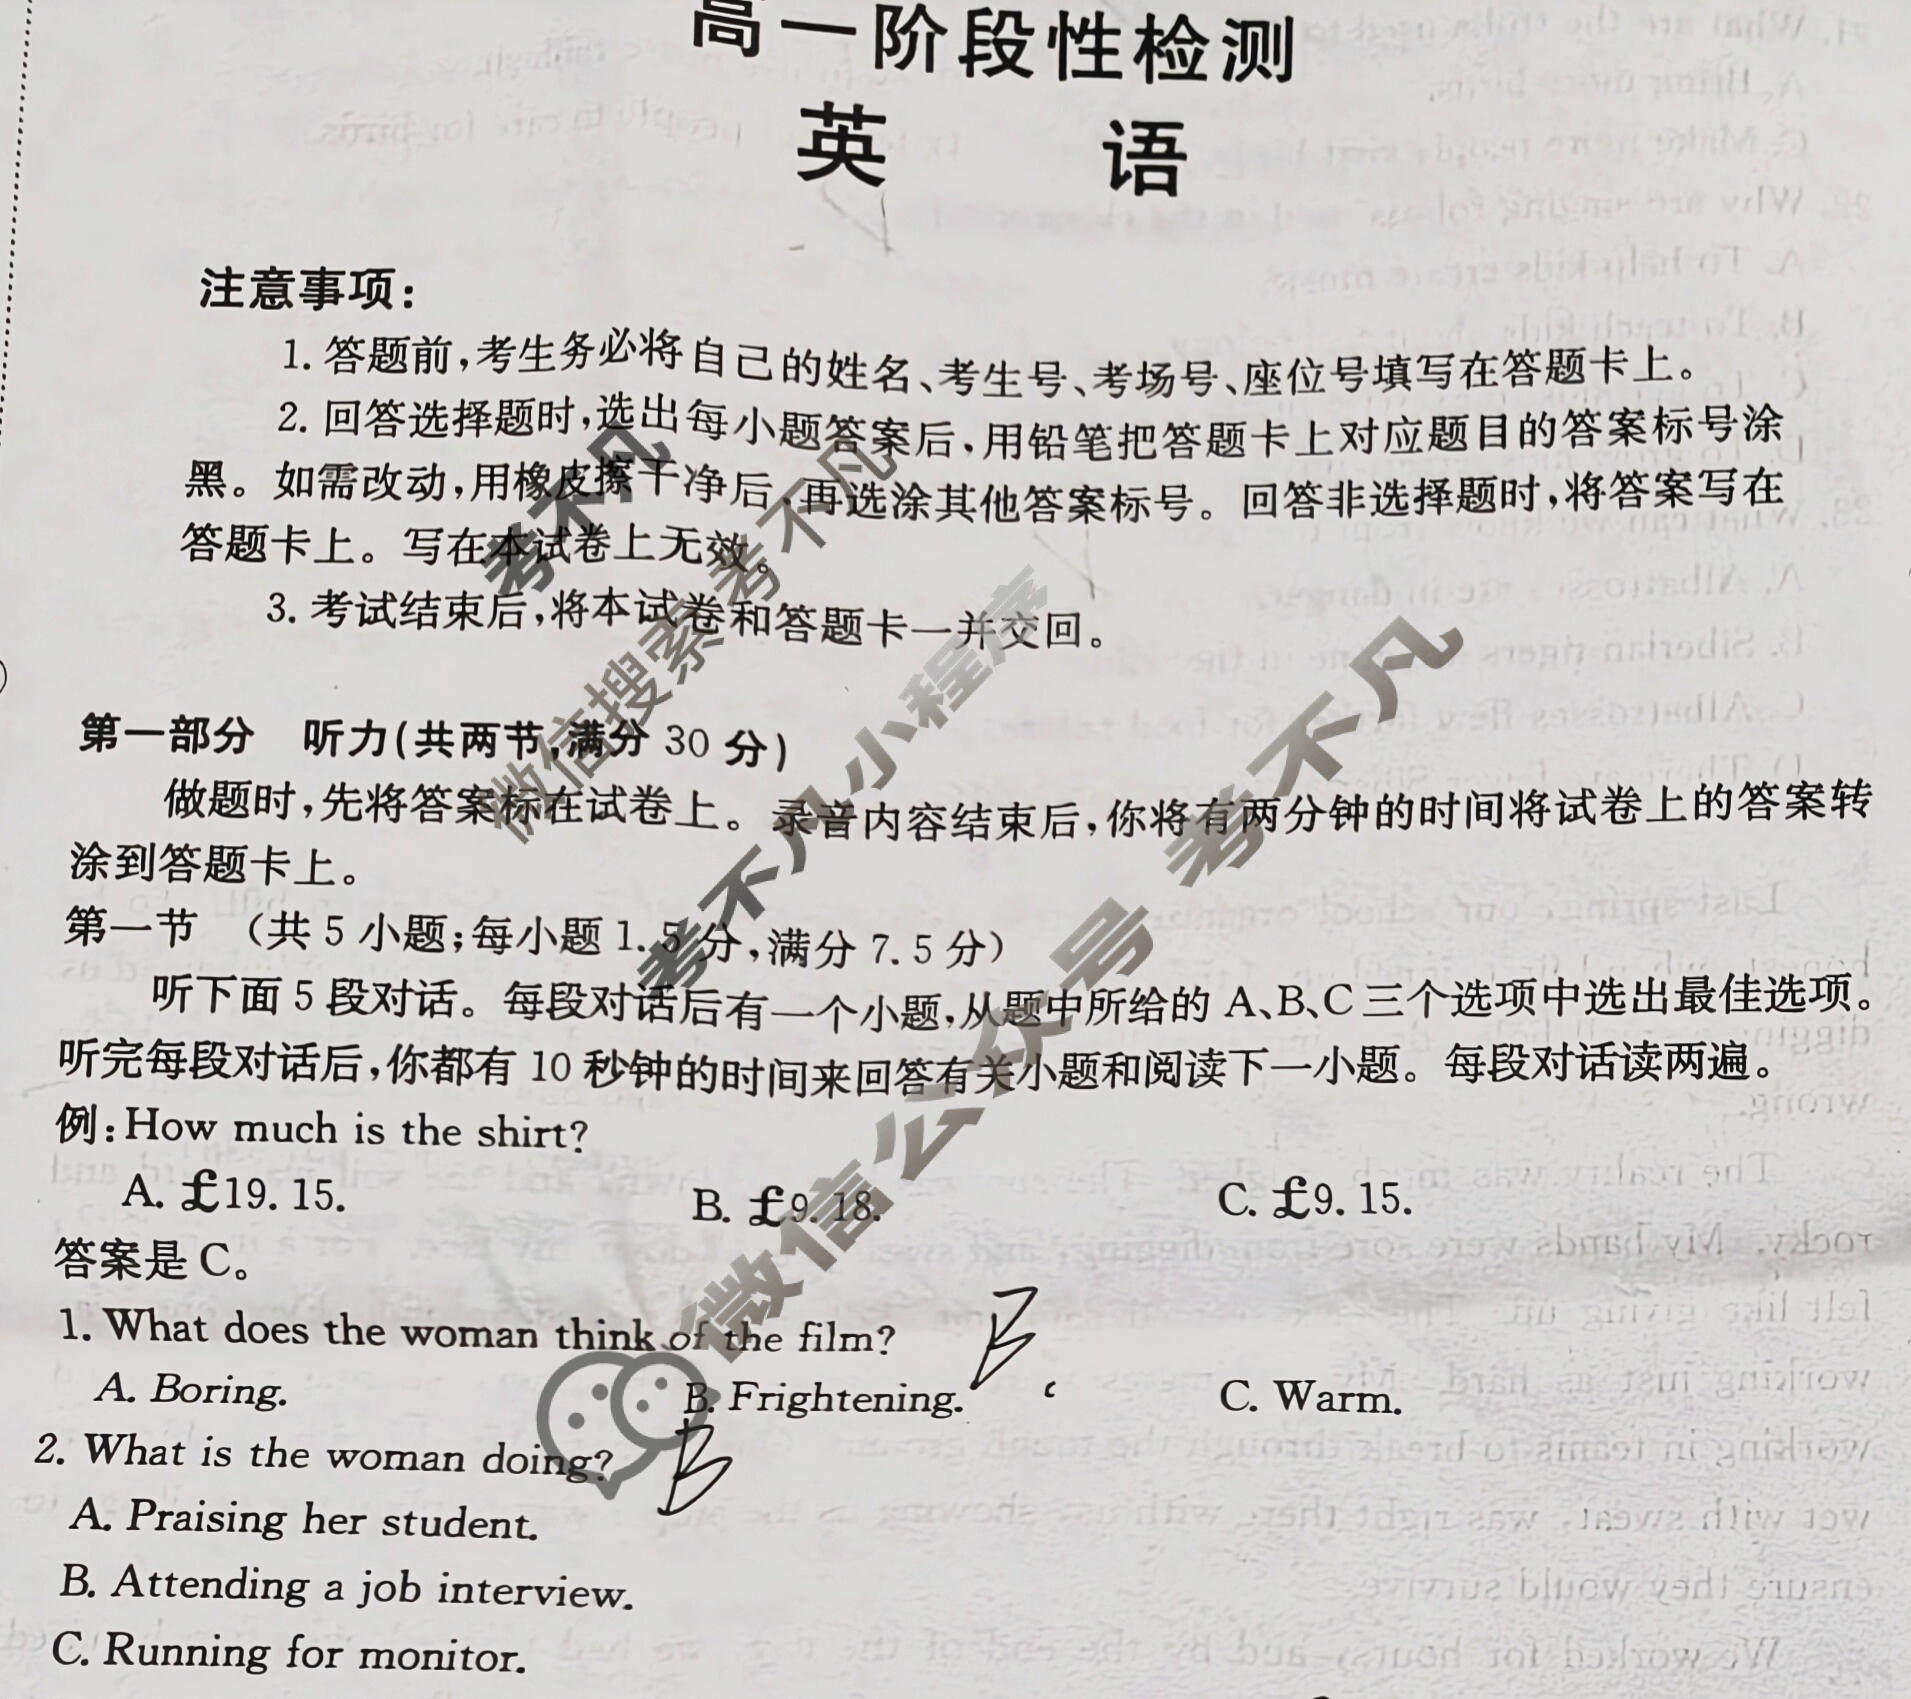 高一阶段性检测
英 语
注意事项:
1. 答题前,考生务必将自己的姓名、考生号、考场号、座位号填写在答题卡上。
2. 回答选择题时,选出每小题答案后,用铅笔把答题卡上对应题目的答案标号涂
黑。如需改动,用橡皮擦干净后,再选涂其他答案标号。回答非选择题时,将答案写在
答题卡上。写在本试卷上无效。
3. 考试结束后,将本试卷和答题卡一并交回。
第一部分 听力(共两节,满分 30 分)
做题时,先将答案标在试卷上。录音内容结束后,你将有两分钟的时间将试卷上的答案转
涂到答题卡上。
第一节 (共 5 小题;每小题 1. 5 分,满分 7. 5 分)
听下面 5 段对话。每段对话后有一个小题,从题中所给的 A、B、C 三个选项中选出最佳选项。
听完每段对话后,你都有 10 秒钟的时间来回答有关小题和阅读下一小题。每段对话读两遍。
例:How much is the shirt?
A. £19. 15. B. £9. 18. C. £9. 15.
答案是 C。
1. What does the woman think of the film? B
A. Boring. B. Frightening. C. Warm.
2. What is the woman doing? B
A. Praising her student.
B. Attending a job interview.
C. Running for monitor.
考不凡
微信搜索 考不凡
考不凡小程序
微信公众号 考不凡